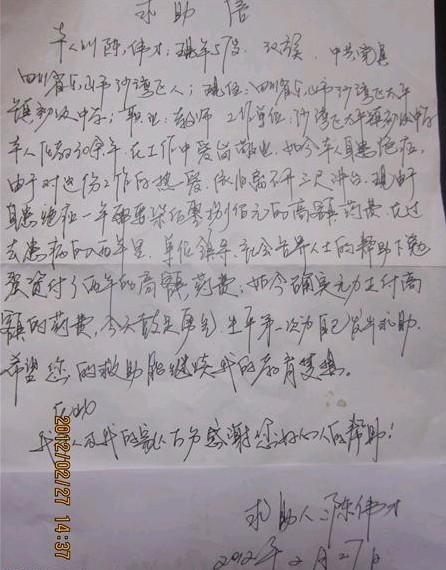 求助信
本人叫陈伟才，现年57岁，汉族，中共党员
四川省乐山市沙湾区人；现住：四川省乐山市沙湾区太平
镇初级中学；职业：教师 工作单位：沙湾区太平镇初级中学
本人任教30余年，在工作中爱岗敬业，如今本人身患绝症，
由于对这份工作的热爱，依旧离不开三尺讲台。现由于
身患绝症一年需要柒佰零捌佰元的高额药费，在过
去患病的两年里，单位领导、社会各界人士的帮助下勉
强资付了两年的高额药费；如今确实无力支付高
额的药费，今天鼓足勇气，生平第一次为自己发出求助，
希望您的救助能继续我的教育梦想。
在此
我本人及我的家人万分感谢您好心人的帮助！
求助人：陈伟才
2012年2月27日
2012/02/27 14:37